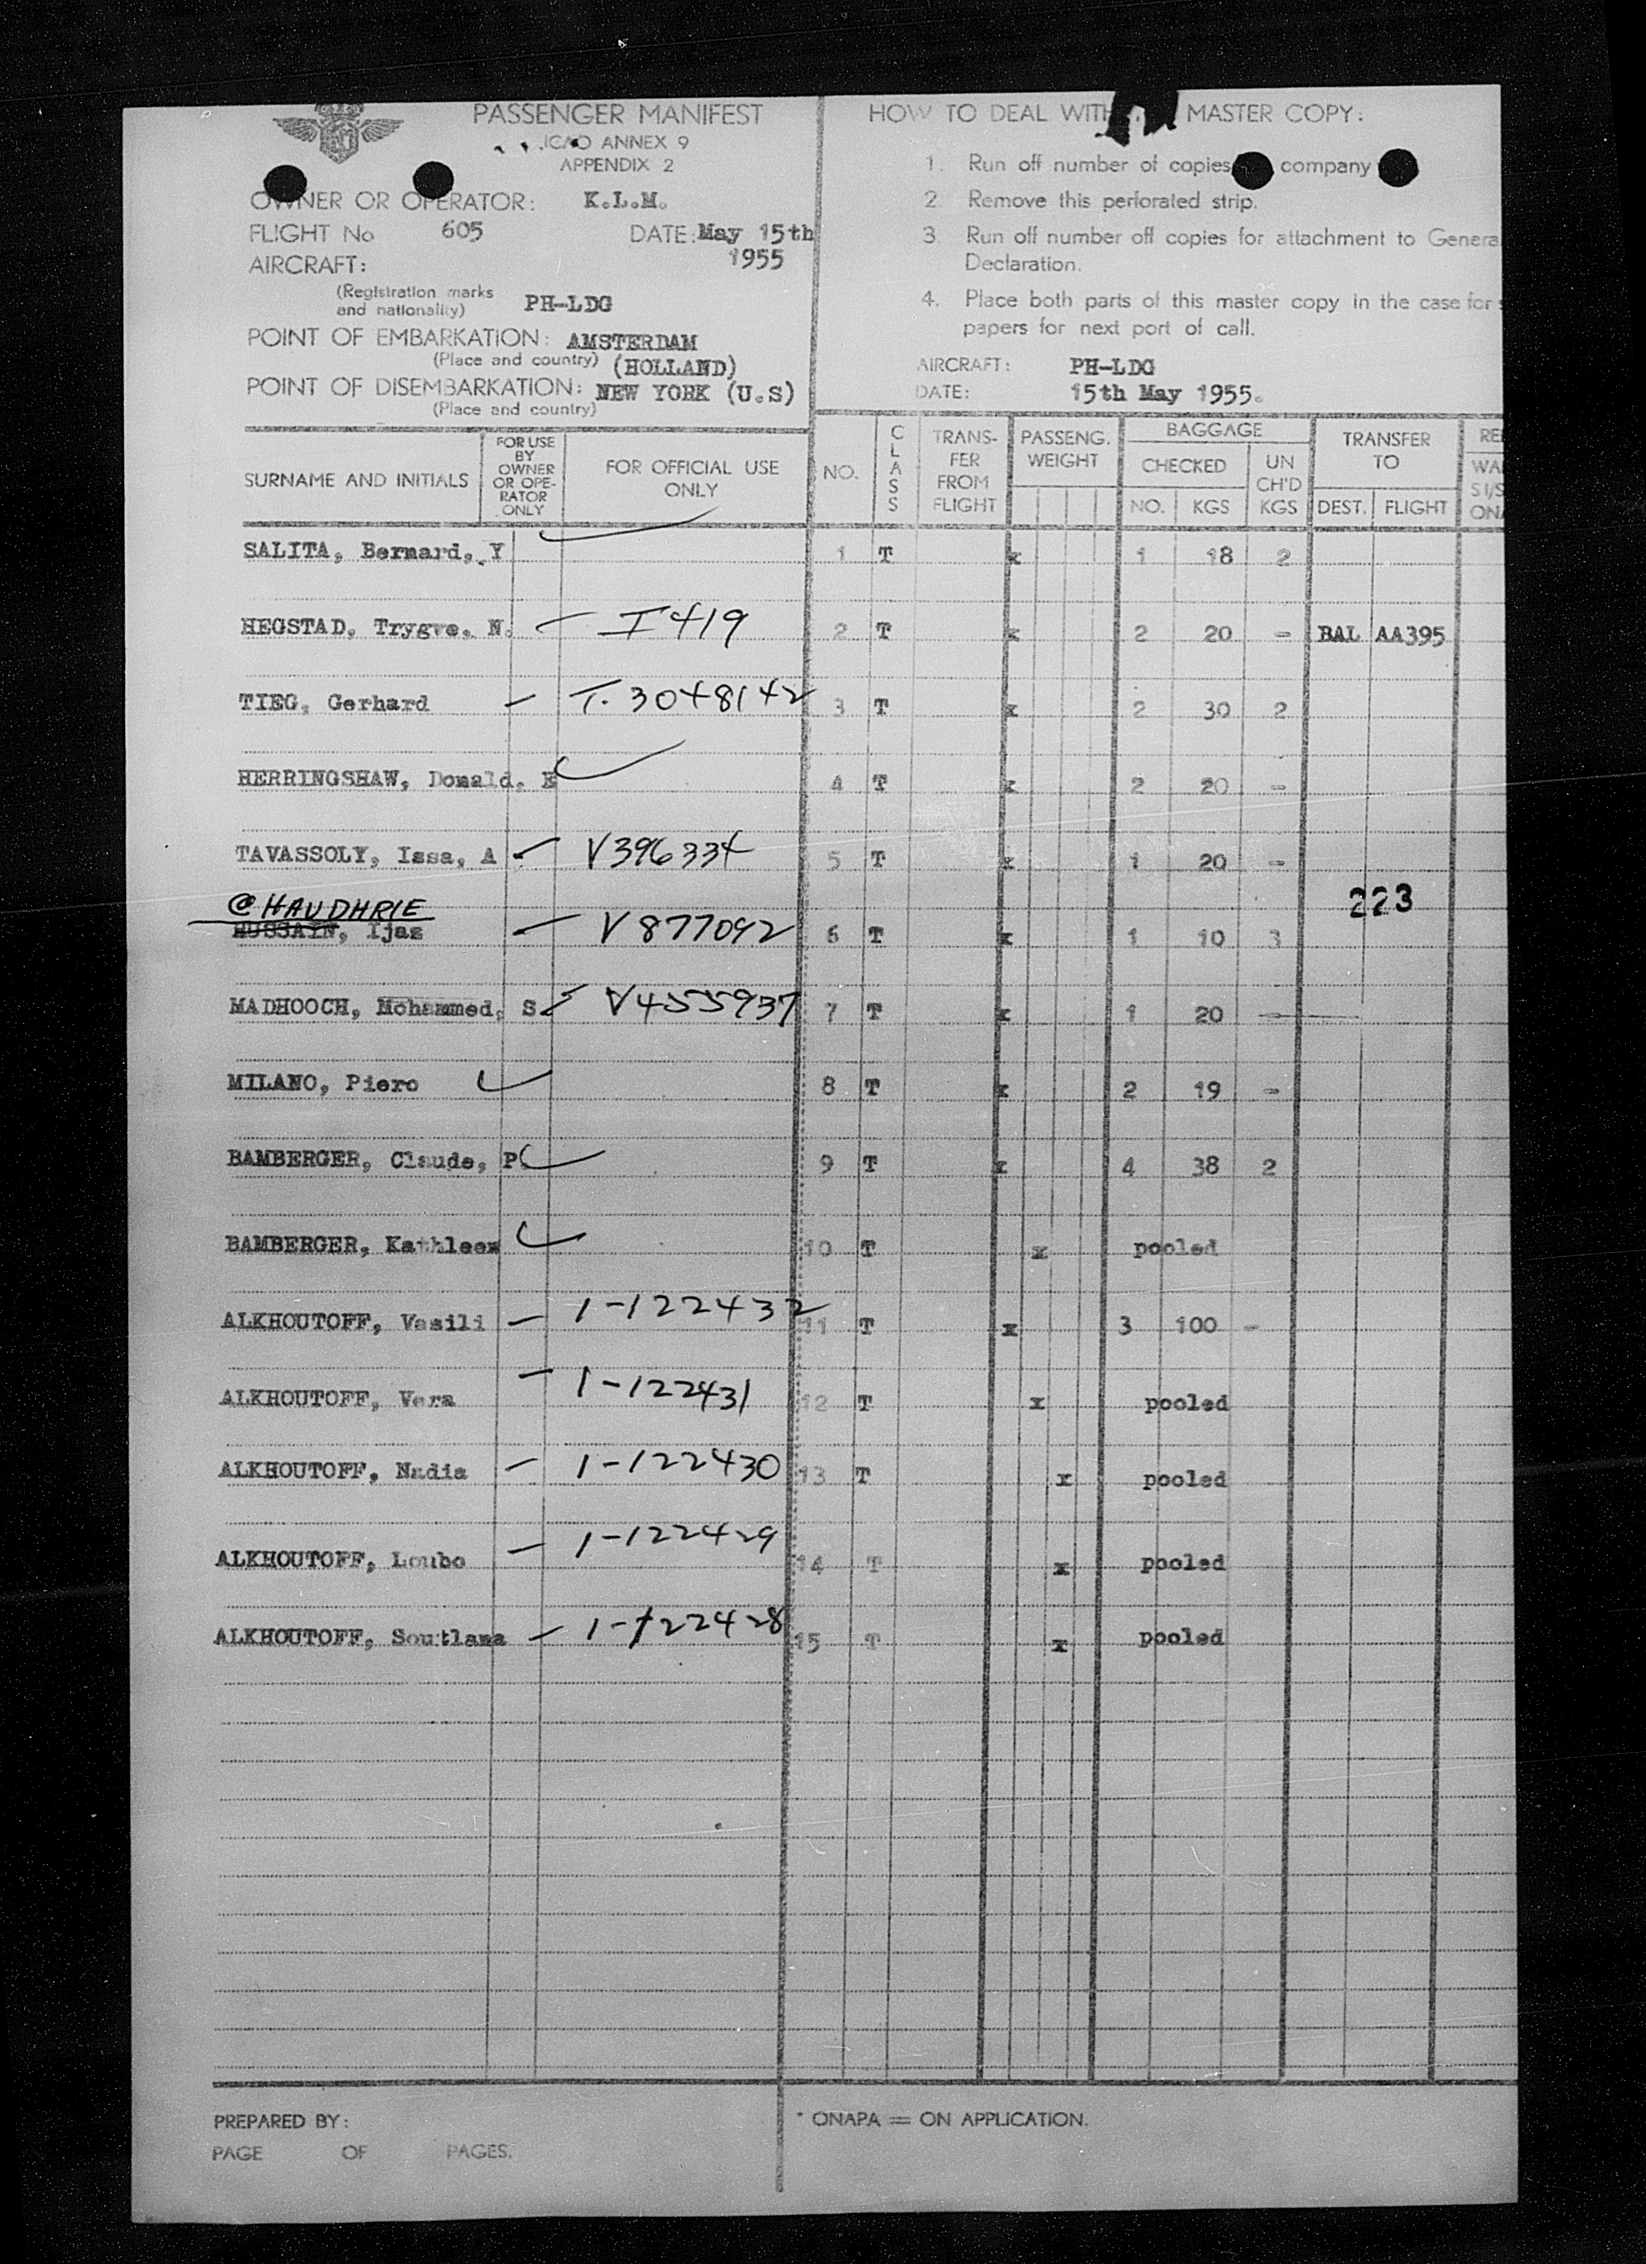 PASSENGER MANIFEST
ICAO ANNEX 9
APPENDIX 2
OWNER OR OPERATOR: K.L.M.
FLIGHT No 605 DATE: May 15th
1955
AIRCRAFT:
(Registration marks
and nationality) PH-LDG
POINT OF EMBARKATION: AMSTERDAM
(Place and country) (HOLLAND)
POINT OF DISEMBARKATION: NEW YORK (U.S)
(Place and country)
HOW TO DEAL WITH MASTER COPY:
1. Run off number of copies company
2. Remove this perforated strip.
3. Run off number off copies for attachment to Genera
Declaration.
4. Place both parts of this master copy in the case for
papers for next port of call.
AIRCRAFT: PH-LDG
DATE: 15th May 1955.
SURNAME AND INITIALS
FOR USE
BY
OWNER
OR OPE-
RATOR
ONLY
FOR OFFICIAL USE
ONLY
NO.
CLASS
TRANS-
FER
FROM
FLIGHT
PASSENG.
WEIGHT
BAGGAGE
CHECKED
NO. KGS
UN
CH'D
KGS
TRANSFER
TO
DEST. FLIGHT
RE
WA
S I/S
ONA
SALITA, Bernard, Y 1 T x 1 18 2
HEGSTAD, Trygve, N. - I 419 2 T x 2 20 - BAL AA395
TIEG, Gerhard - T. 3048142 3 T x 2 30 2
HERRINGSHAW, Donald, E 4 T x 2 20 -
TAVASSOLY, Issa, A - V396334 5 T x 1 20 -
223
@HAUDHRIE
HUSSAIN, Ijaz - V877092 6 T x 1 10 3
MADHOOCH, Mohammed, S - V455937 7 T x 1 20 -
MILANO, Piero 8 T x 2 19 -
BAMBERGER, Claude, P. 9 T x 4 38 2
BAMBERGER, Kathleen 10 T x pooled
ALKHOUTOFF, Vasili - 1-122432 11 T x 3 100 -
ALKHOUTOFF, Vera - 1-122431 12 T x pooled
ALKHOUTOFF, Nadia - 1-122430 13 T x pooled
ALKHOUTOFF, Loubo - 1-122429 14 T x pooled
ALKHOUTOFF, Soutlana - 1-122428 15 T x pooled
PREPARED BY:
PAGE OF PAGES.
* ONAPA = ON APPLICATION.